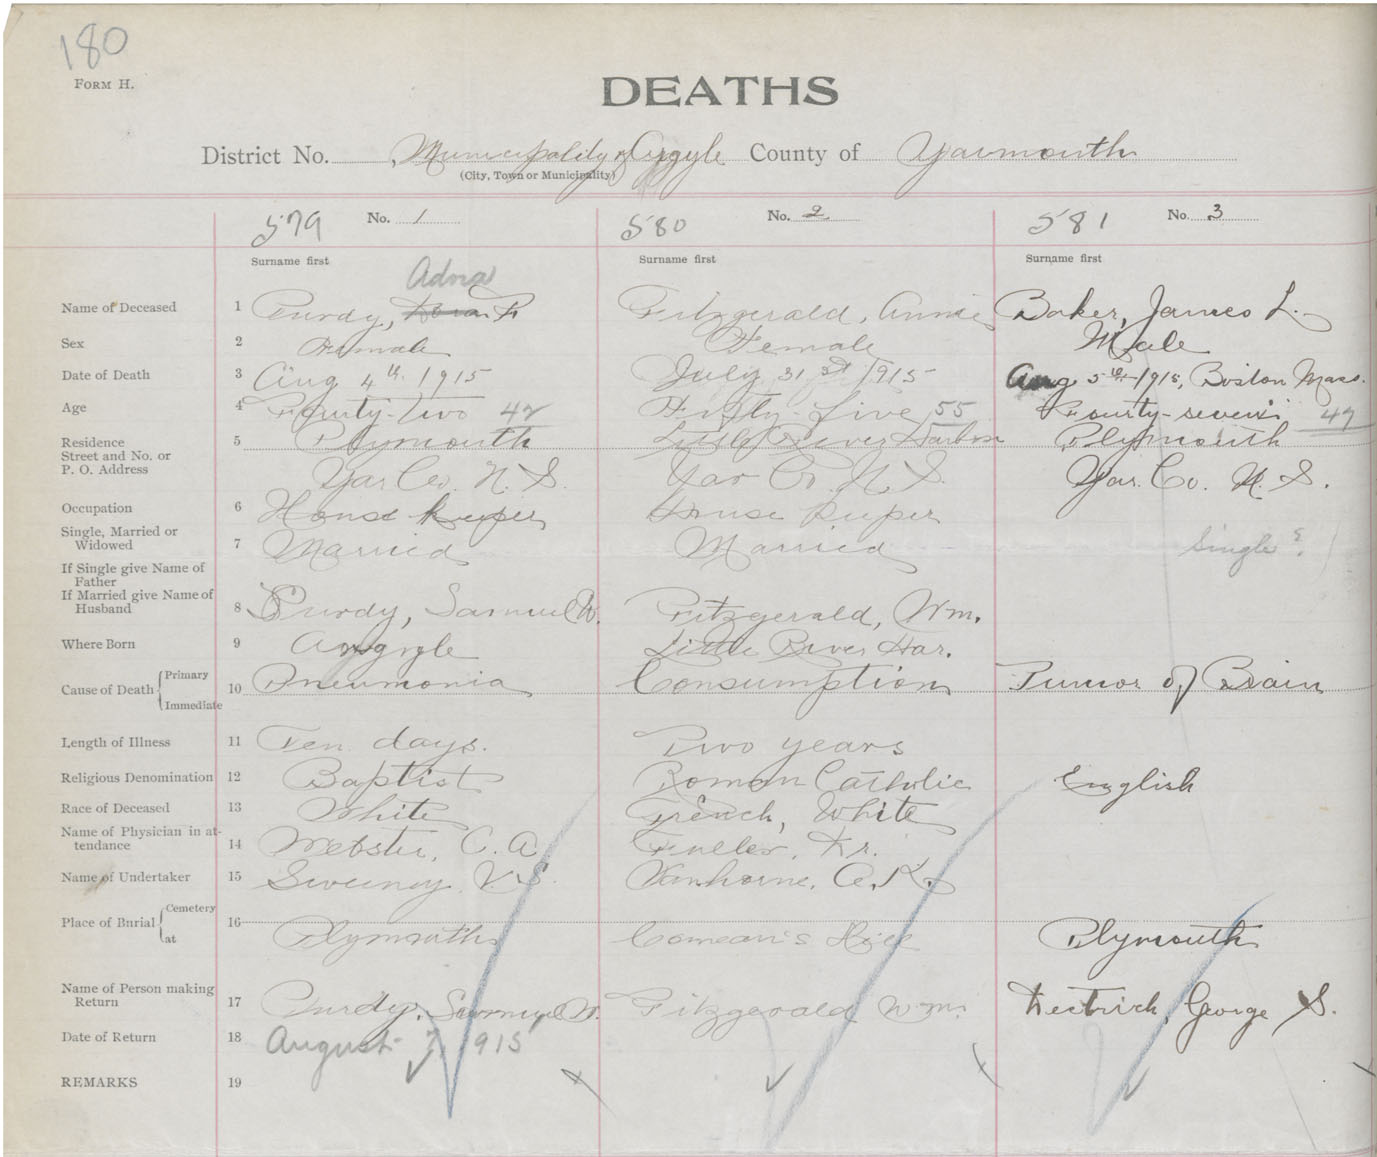 180
FORM H.
DEATHS
District No. Municipality of Argyle County of Yarmouth
(City, Town or Municipality)
579 No. 1 580 No. 2 581 No. 3
Surname first Surname first Surname first
Adna
Name of Deceased 1 Purdy, F. Fitzgerald, Annie Baker, James L.
Sex 2 Female Female Male
Date of Death 3 Aug 4th 1915 July 31st 1915 Aug 5th 1915, Boston Mass.
Age 4 Fourty-two 42 Fifty-five 55 Fourty-seven 47
Residence 5 Plymouth Little River Harbor Plymouth
Street and No. or
P. O. Address Yar Co. N. S. Yar Co. N. S. Yar. Co. N. S.
Occupation 6 House keeper House keeper
Single, Married or
Widowed 7 Married Married Single ?
If Single give Name of
Father
If Married give Name of
Husband 8 Purdy, Samuel W. Fitzgerald, Wm.
Where Born 9 Argyle Little River Har.
Cause of Death { Primary 10 Pneumonia Consumption Tumor of Brain
Immediate
Length of Illness 11 Ten days. Two years
Religious Denomination 12 Baptist Roman Catholic English
Race of Deceased 13 White French, White
Name of Physician in at-
tendance 14 Webster, C. A Fuller, Dr.
Name of Undertaker 15 Sweeney V. S. Vanhorne, C. K.
Place of Burial { Cemetery 16
at Plymouth Comeau's Hill Plymouth
Name of Person making
Return 17 Purdy, Samuel W. Fitzgerald Wm. Deitrich, George S.
Date of Return 18 August 7, 1915
REMARKS 19